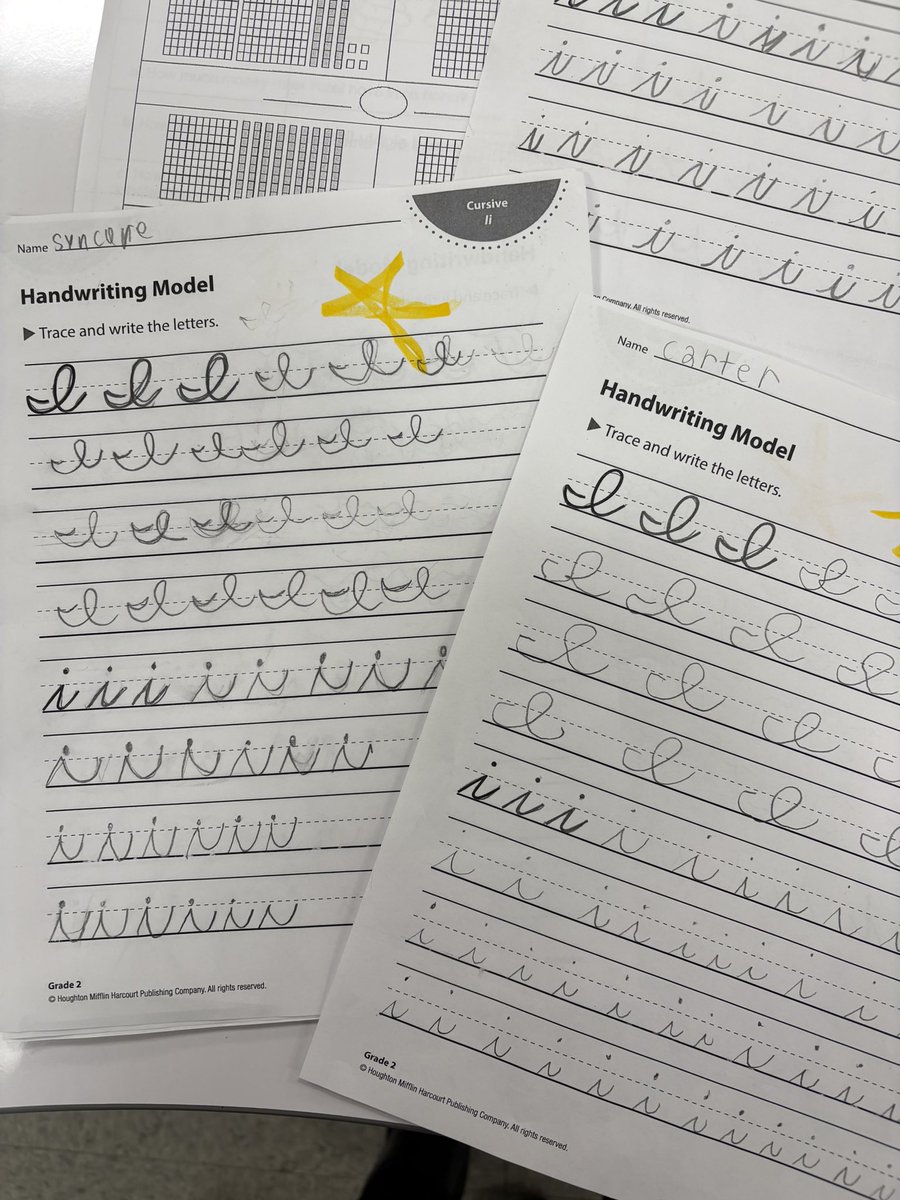 i i i i i i i
i i i i i i i
i i i i i i i
i i i i i i
Company. All rights reserved.
Cursive
Ii
Name
Handwriting Model
Trace and write the letters.
I I I I I I I
I I I I I I
I I I I I I
I I I I I I
i i i i i i i i
i i i i i i
i i i i i i
i i i i i i
Grade 2
© Houghton Mifflin Harcourt Publishing Company. All rights reserved.
Name carter
Handwriting Model
Trace and write the letters.
I I I I I
I I I I
I I I I
I I I I
i i i i i i i i i
i i i i i i i i i
i i i i i i i i i i i
i i i i i i i i i i i i
Grade 2
© Houghton Mifflin Harcourt Publishing Company. All rights reserved.